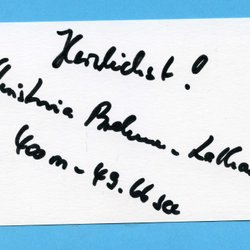 Herzlichst!
hristina Brehmer - Latha
400 m - 49.66 sec